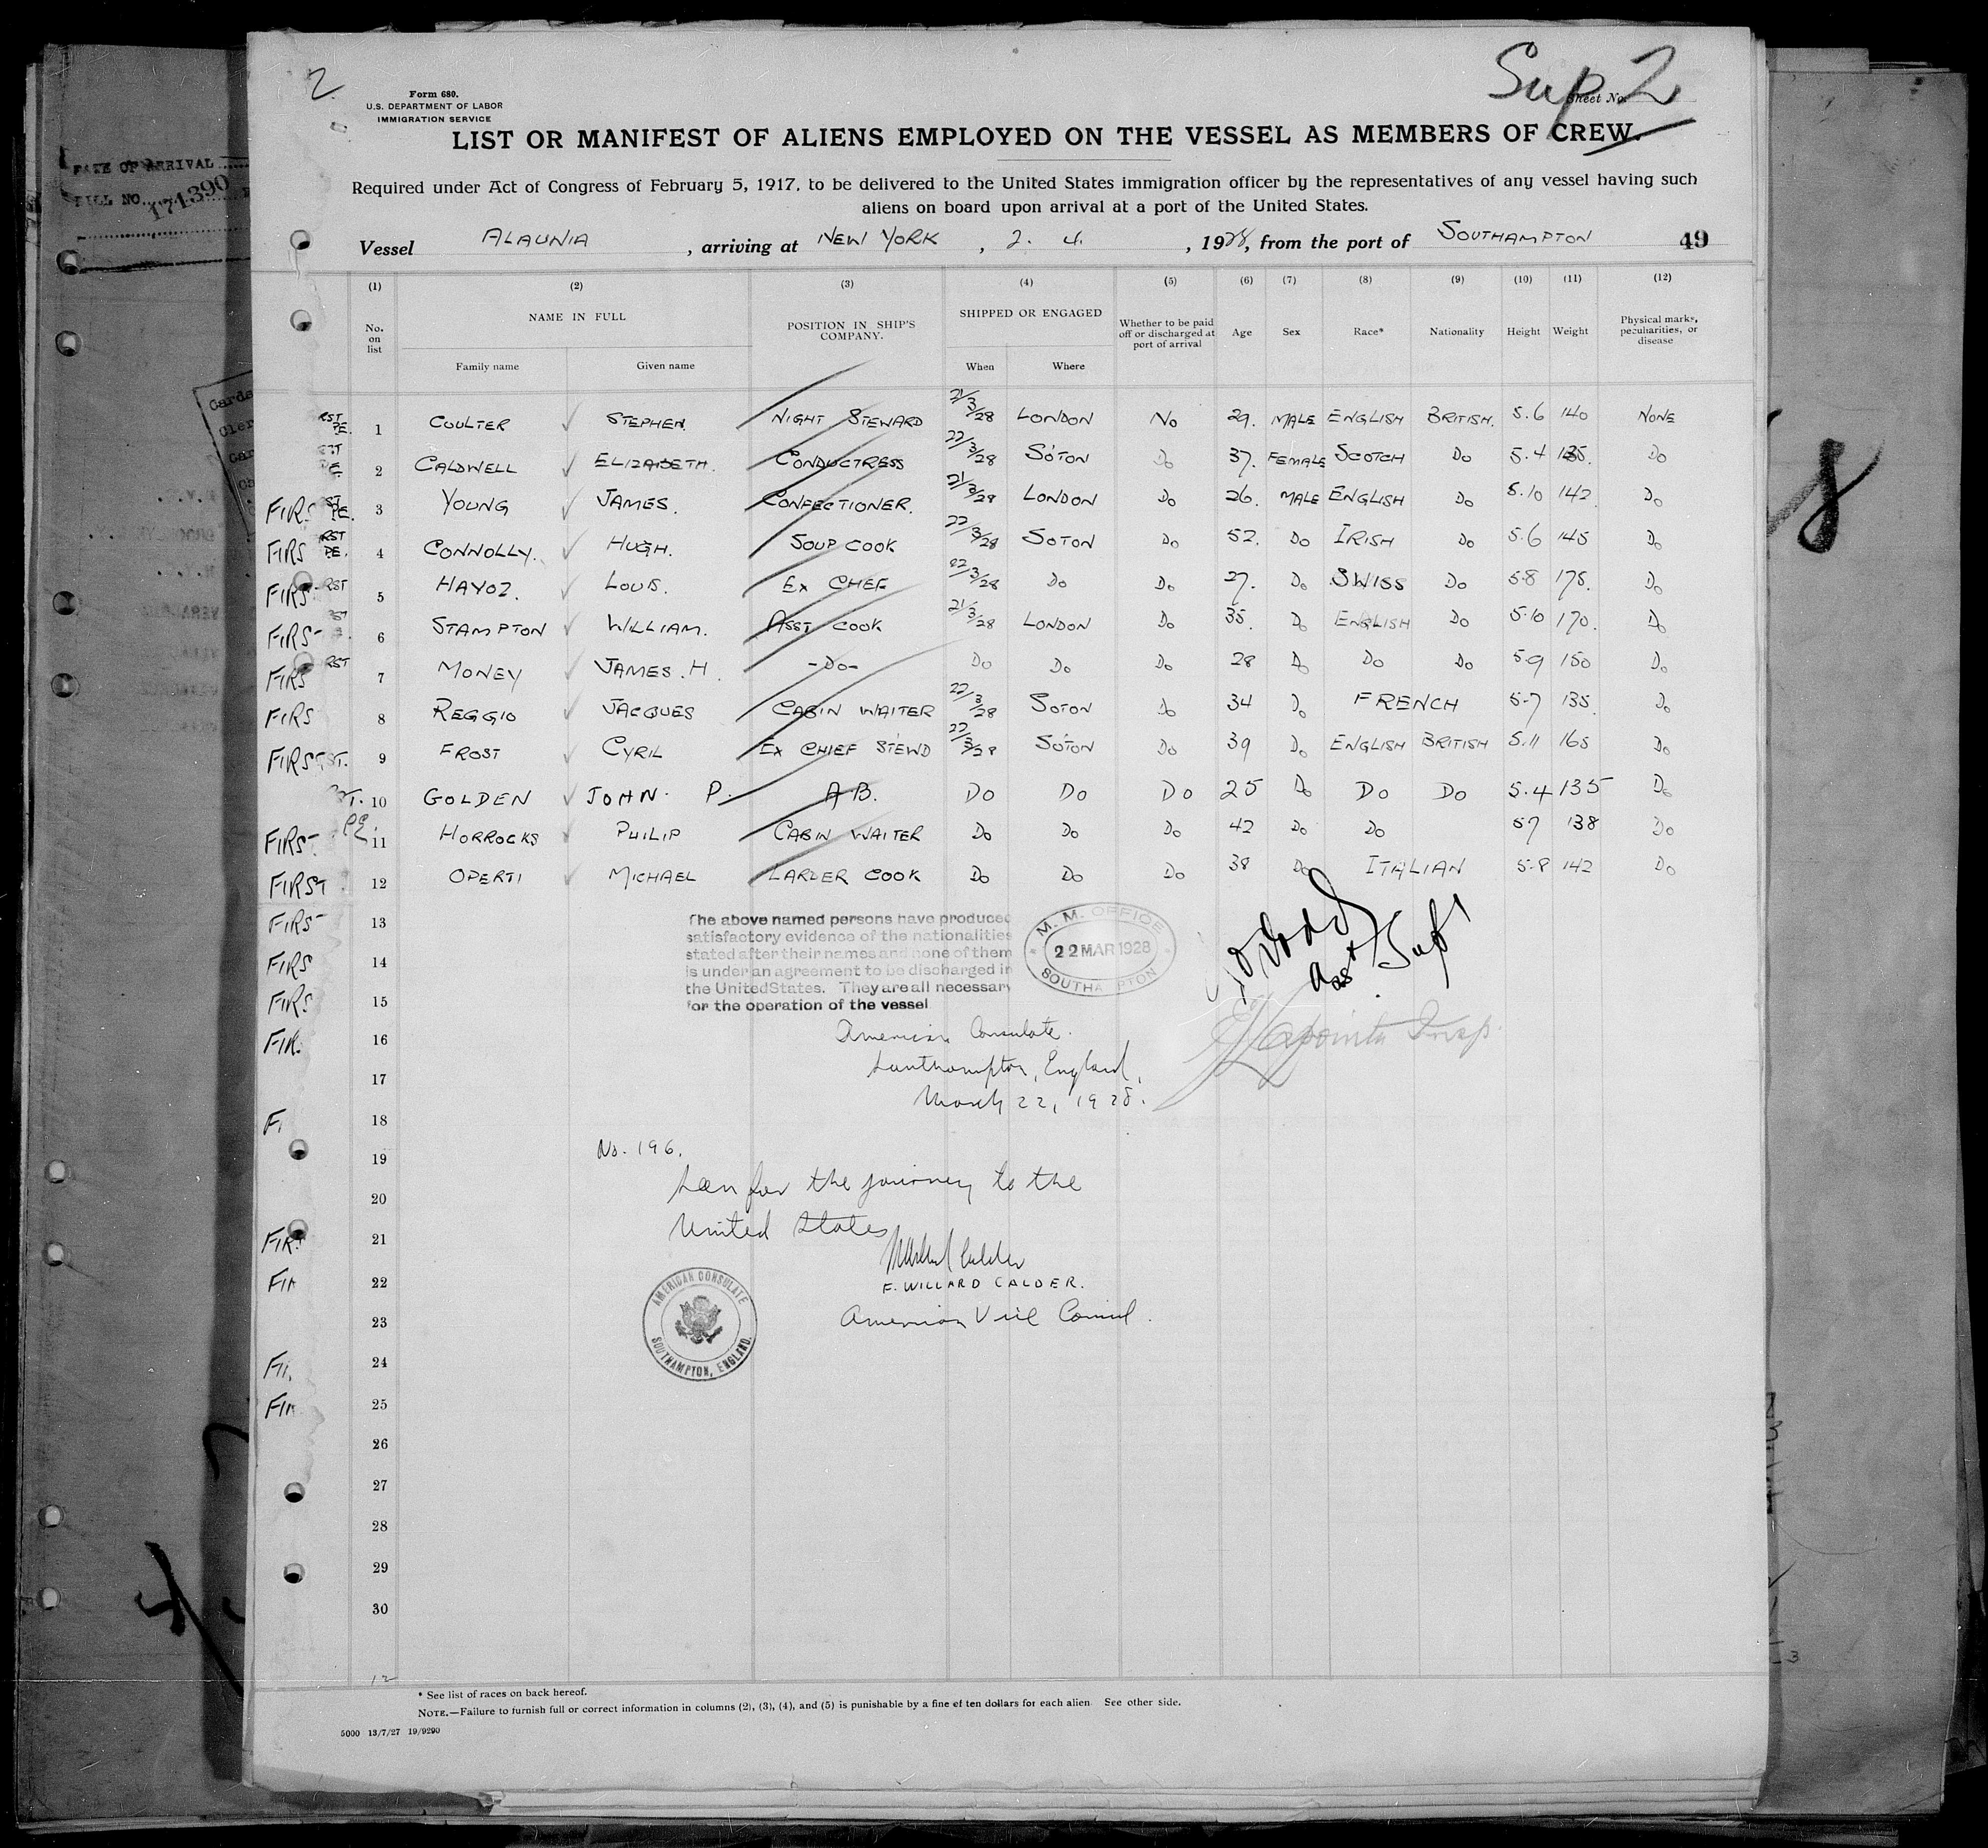 2
Sup 2
Form 680.
U.S. DEPARTMENT OF LABOR
IMMIGRATION SERVICE
Sheet No.
LIST OR MANIFEST OF ALIENS EMPLOYED ON THE VESSEL AS MEMBERS OF CREW.
Required under Act of Congress of February 5, 1917, to be delivered to the United States immigration officer by the representatives of any vessel having such
aliens on board upon arrival at a port of the United States.
Vessel ALAUNIA, arriving at NEW YORK, 2. 4., 1928, from the port of SOUTHAMPTON 49
(1) (2) (3) (4) (5) (6) (7) (8) (9) (10) (11) (12)
No. on list NAME IN FULL POSITION IN SHIP'S COMPANY. SHIPPED OR ENGAGED Whether to be paid off or discharged at port of arrival Age Sex Race* Nationality Height Weight Physical marks, peculiarities, or disease
Family name Given name When Where
1 COULTER STEPHEN. NIGHT STEWARD 21/3/28 LONDON No 29. MALE ENGLISH BRITISH. 5.6 140 NONE
2 CALDWELL ELIZABETH. CONDUCTRESS 22/3/28 SOTON Do 37. FEMALE SCOTCH Do 5.4 135. Do
FIRS 3 YOUNG JAMES. CONFECTIONER. 21/3/28 LONDON Do 26. MALE ENGLISH Do 5.10 142 Do
FIRS 4 CONNOLLY. HUGH. SOUP COOK 22/3/28 SOTON Do 52. Do IRISH Do 5.6 145 Do
FIRS 5 HAYOZ. LOUIS. EX CHEF 22/3/28 Do Do 27. Do SWISS Do 5.8 175. Do
FIRS 6 STAMPTON WILLIAM. ASST COOK 21/3/28 LONDON Do 35. Do ENGLISH Do 5.10 170. Do
FIRS 7 MONEY JAMES. H. -Do- Do Do Do 28 Do Do Do 5.9 150 Do
FIRS 8 REGGIO JACQUES CABIN WAITER 22/3/28 SOTON Do 34 Do FRENCH 5.7 135 Do
FIRST. 9 FROST CYRIL EX CHIEF STEWD 22/3/28 SOTON Do 39 Do ENGLISH BRITISH 5.11 165 Do
10 GOLDEN JOHN. P. A.B. Do Do Do 25 Do Do Do 5.4 135 Do
FIRST 11 HORROCKS PHILIP CABIN WAITER Do Do Do 42 Do Do 5.7 138 Do
FIRST 12 OPERTI MICHAEL LARDER COOK Do Do Do 38 Do ITALIAN 5.8 142 Do
FIRST 13
FIRS 14
FIRS 15
FIR 16
17
F 18
19
20
FIRS 21
FIR 22
23
FI 24
FIR 25
26
27
28
29
30
The above named persons have produced
satisfactory evidence of the nationalities
stated after their names and none of them
is under an agreement to be discharged in
the United States. They are all necessary
for the operation of the vessel
M. M. OFFICE
22 MAR 1928
SOUTHAMPTON
Asst Supt
Lapointe Insp.
American Consulate.
Southampton, England,
March 22, 1928.
No. 196.
Seen for the journey to the
United States
F. WILLARD CALDER.
American Vice Consul.
AMERICAN CONSULATE
SOUTHAMPTON, ENGLAND.
12
* See list of races on back hereof.
NOTE.—Failure to furnish full or correct information in columns (2), (3), (4), and (5) is punishable by a fine of ten dollars for each alien. See other side.
5000 13/7/27 19/9290
DATE OF ARRIVAL
BILL NO. 171390